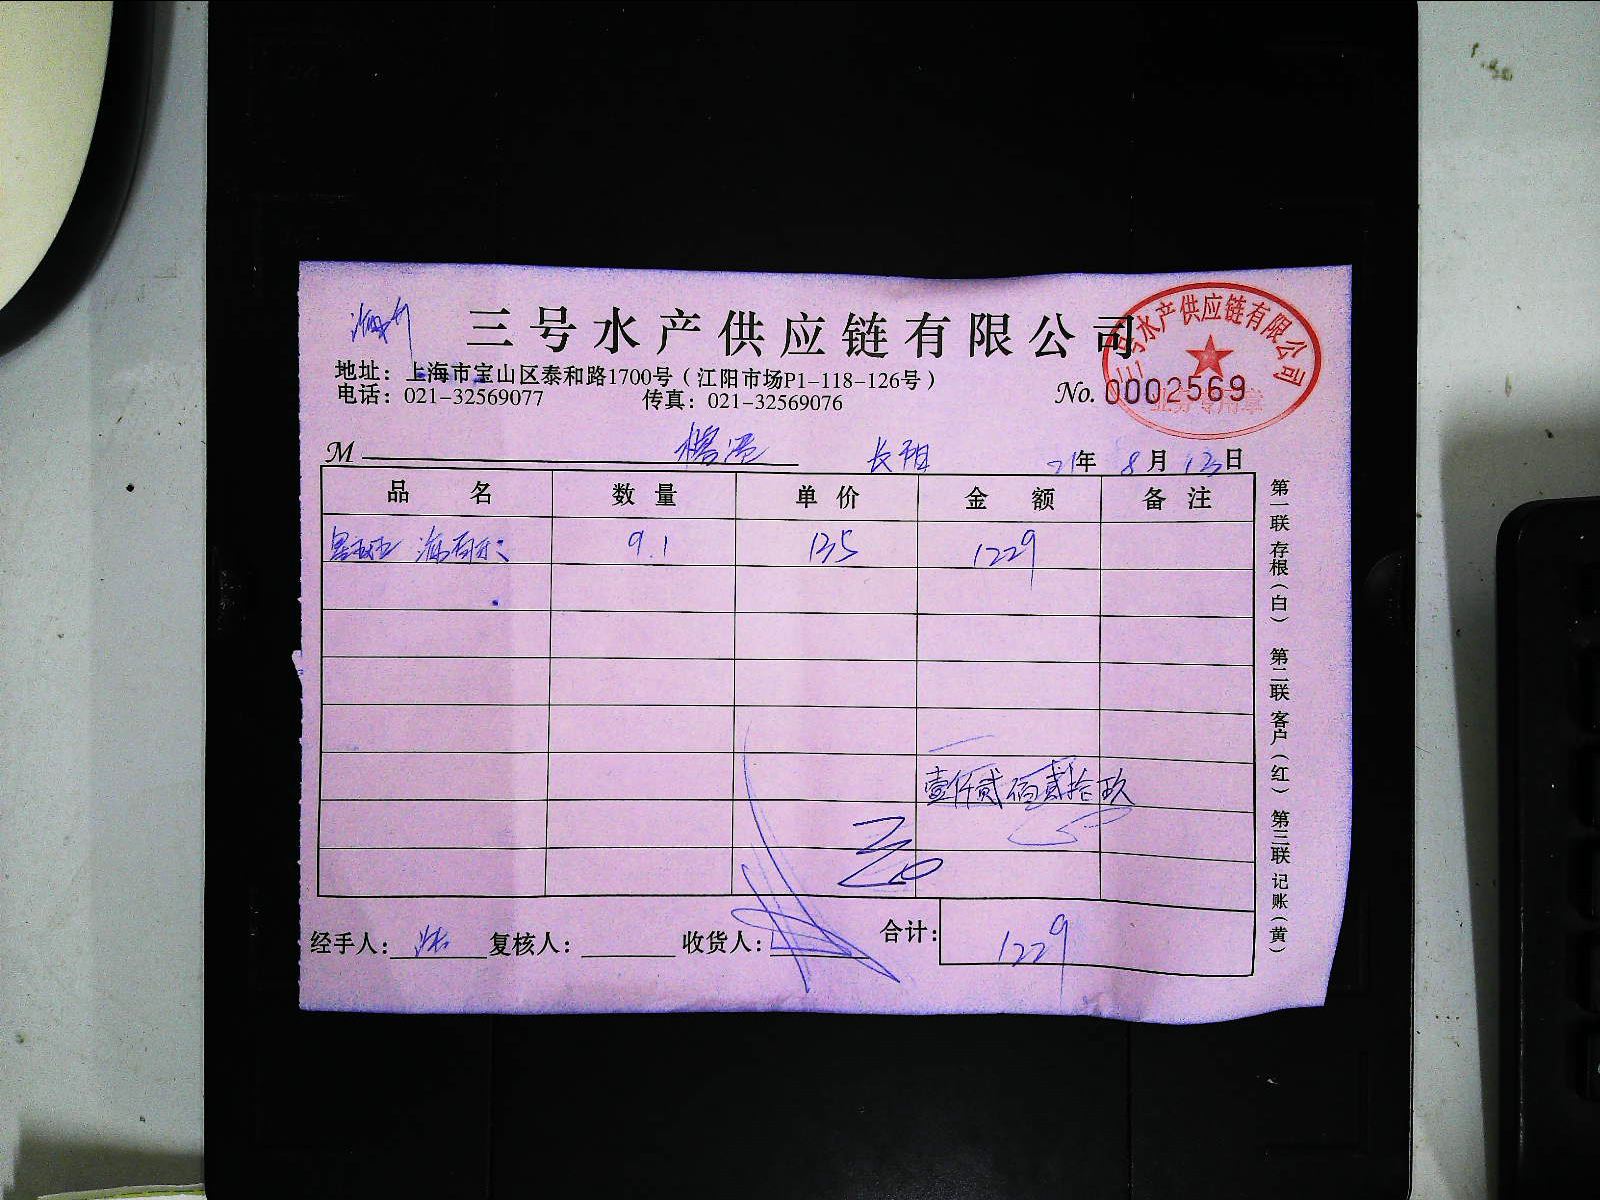 三号水产供应链有限公司
三号水产供应链有限公司
业务专用章
地址：上海市宝山区泰和路1700号（江阳市场P1-118-126号）
电话：021-32569077 传真：021-32569076 No. 0002569
M 长阳 21年 8月 13日
品名 数量 单价 金额 备注
9.1 135 1229
壹仟贰佰贰拾玖
经手人： 复核人： 收货人： 合计： 1229
第一联 存根（白） 第二联 客户（红） 第三联 记账（黄）